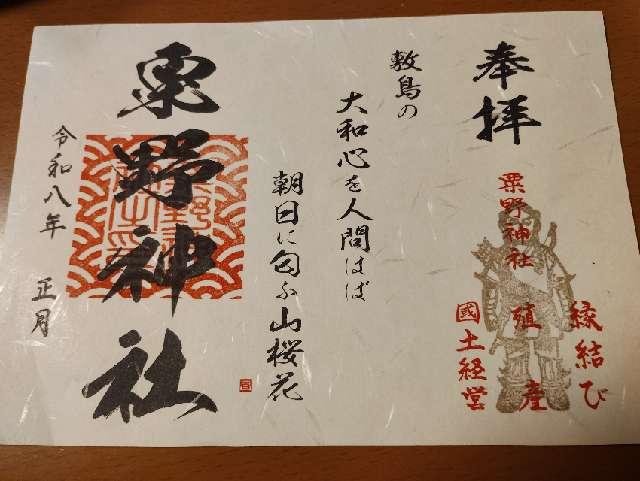 奉拝
粟野神社
縁結び
殖産
國土経営
敷島の
大和心を人問はば
朝日に匂ふ山桜花
粟野神社
令和八年 正月